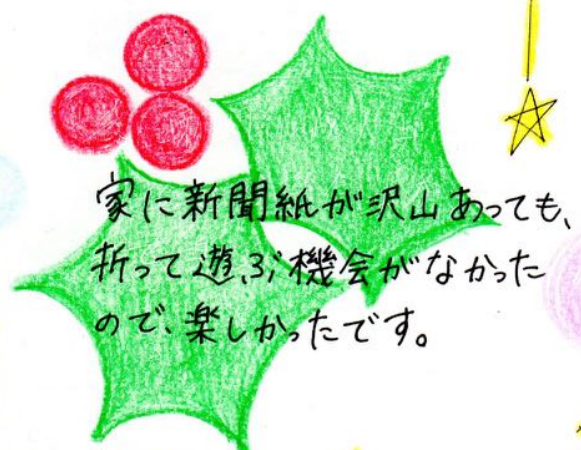 家に新聞紙が沢山あっても、
折って遊ぶ機会がなかった
ので、楽しかったです。